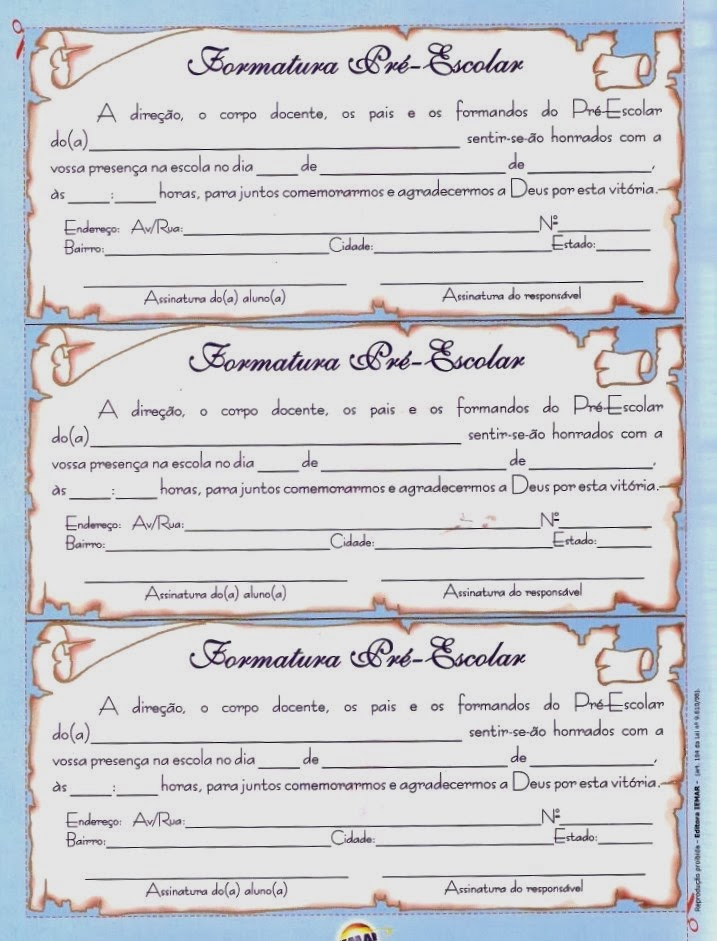 Formatura Pré-Escolar
A direção, o corpo docente, os pais e os formandos do Pré-Escolar
do(a)____________________ sentir-se-ão honrados com a
vossa presença na escola no dia ____ de ____________ de ____________,
às ____:____ horas, para juntos comemorarmos e agradecermos a Deus por esta vitória.
Endereço: Av/Rua:____________________ Nº____________
Bairro:____________________ Cidade:____________________ Estado:______
Assinatura do(a) aluno(a) Assinatura do responsável
Formatura Pré-Escolar
A direção, o corpo docente, os pais e os formandos do Pré-Escolar
do(a)____________________ sentir-se-ão honrados com a
vossa presença na escola no dia ____ de ____________ de ____________,
às ____:____ horas, para juntos comemorarmos e agradecermos a Deus por esta vitória.
Endereço: Av/Rua:____________________ Nº____________
Bairro:____________________ Cidade:____________________ Estado:______
Assinatura do(a) aluno(a) Assinatura do responsável
Formatura Pré-Escolar
A direção, o corpo docente, os pais e os formandos do Pré-Escolar
do(a)____________________ sentir-se-ão honrados com a
vossa presença na escola no dia ____ de ____________ de ____________,
às ____:____ horas, para juntos comemorarmos e agradecermos a Deus por esta vitória.
Endereço: Av/Rua:____________________ Nº____________
Bairro:____________________ Cidade:____________________ Estado:______
Assinatura do(a) aluno(a) Assinatura do responsável
Reprodução proibida - Editora IEMAR - (art. 184 da Lei nº 9.610/98).